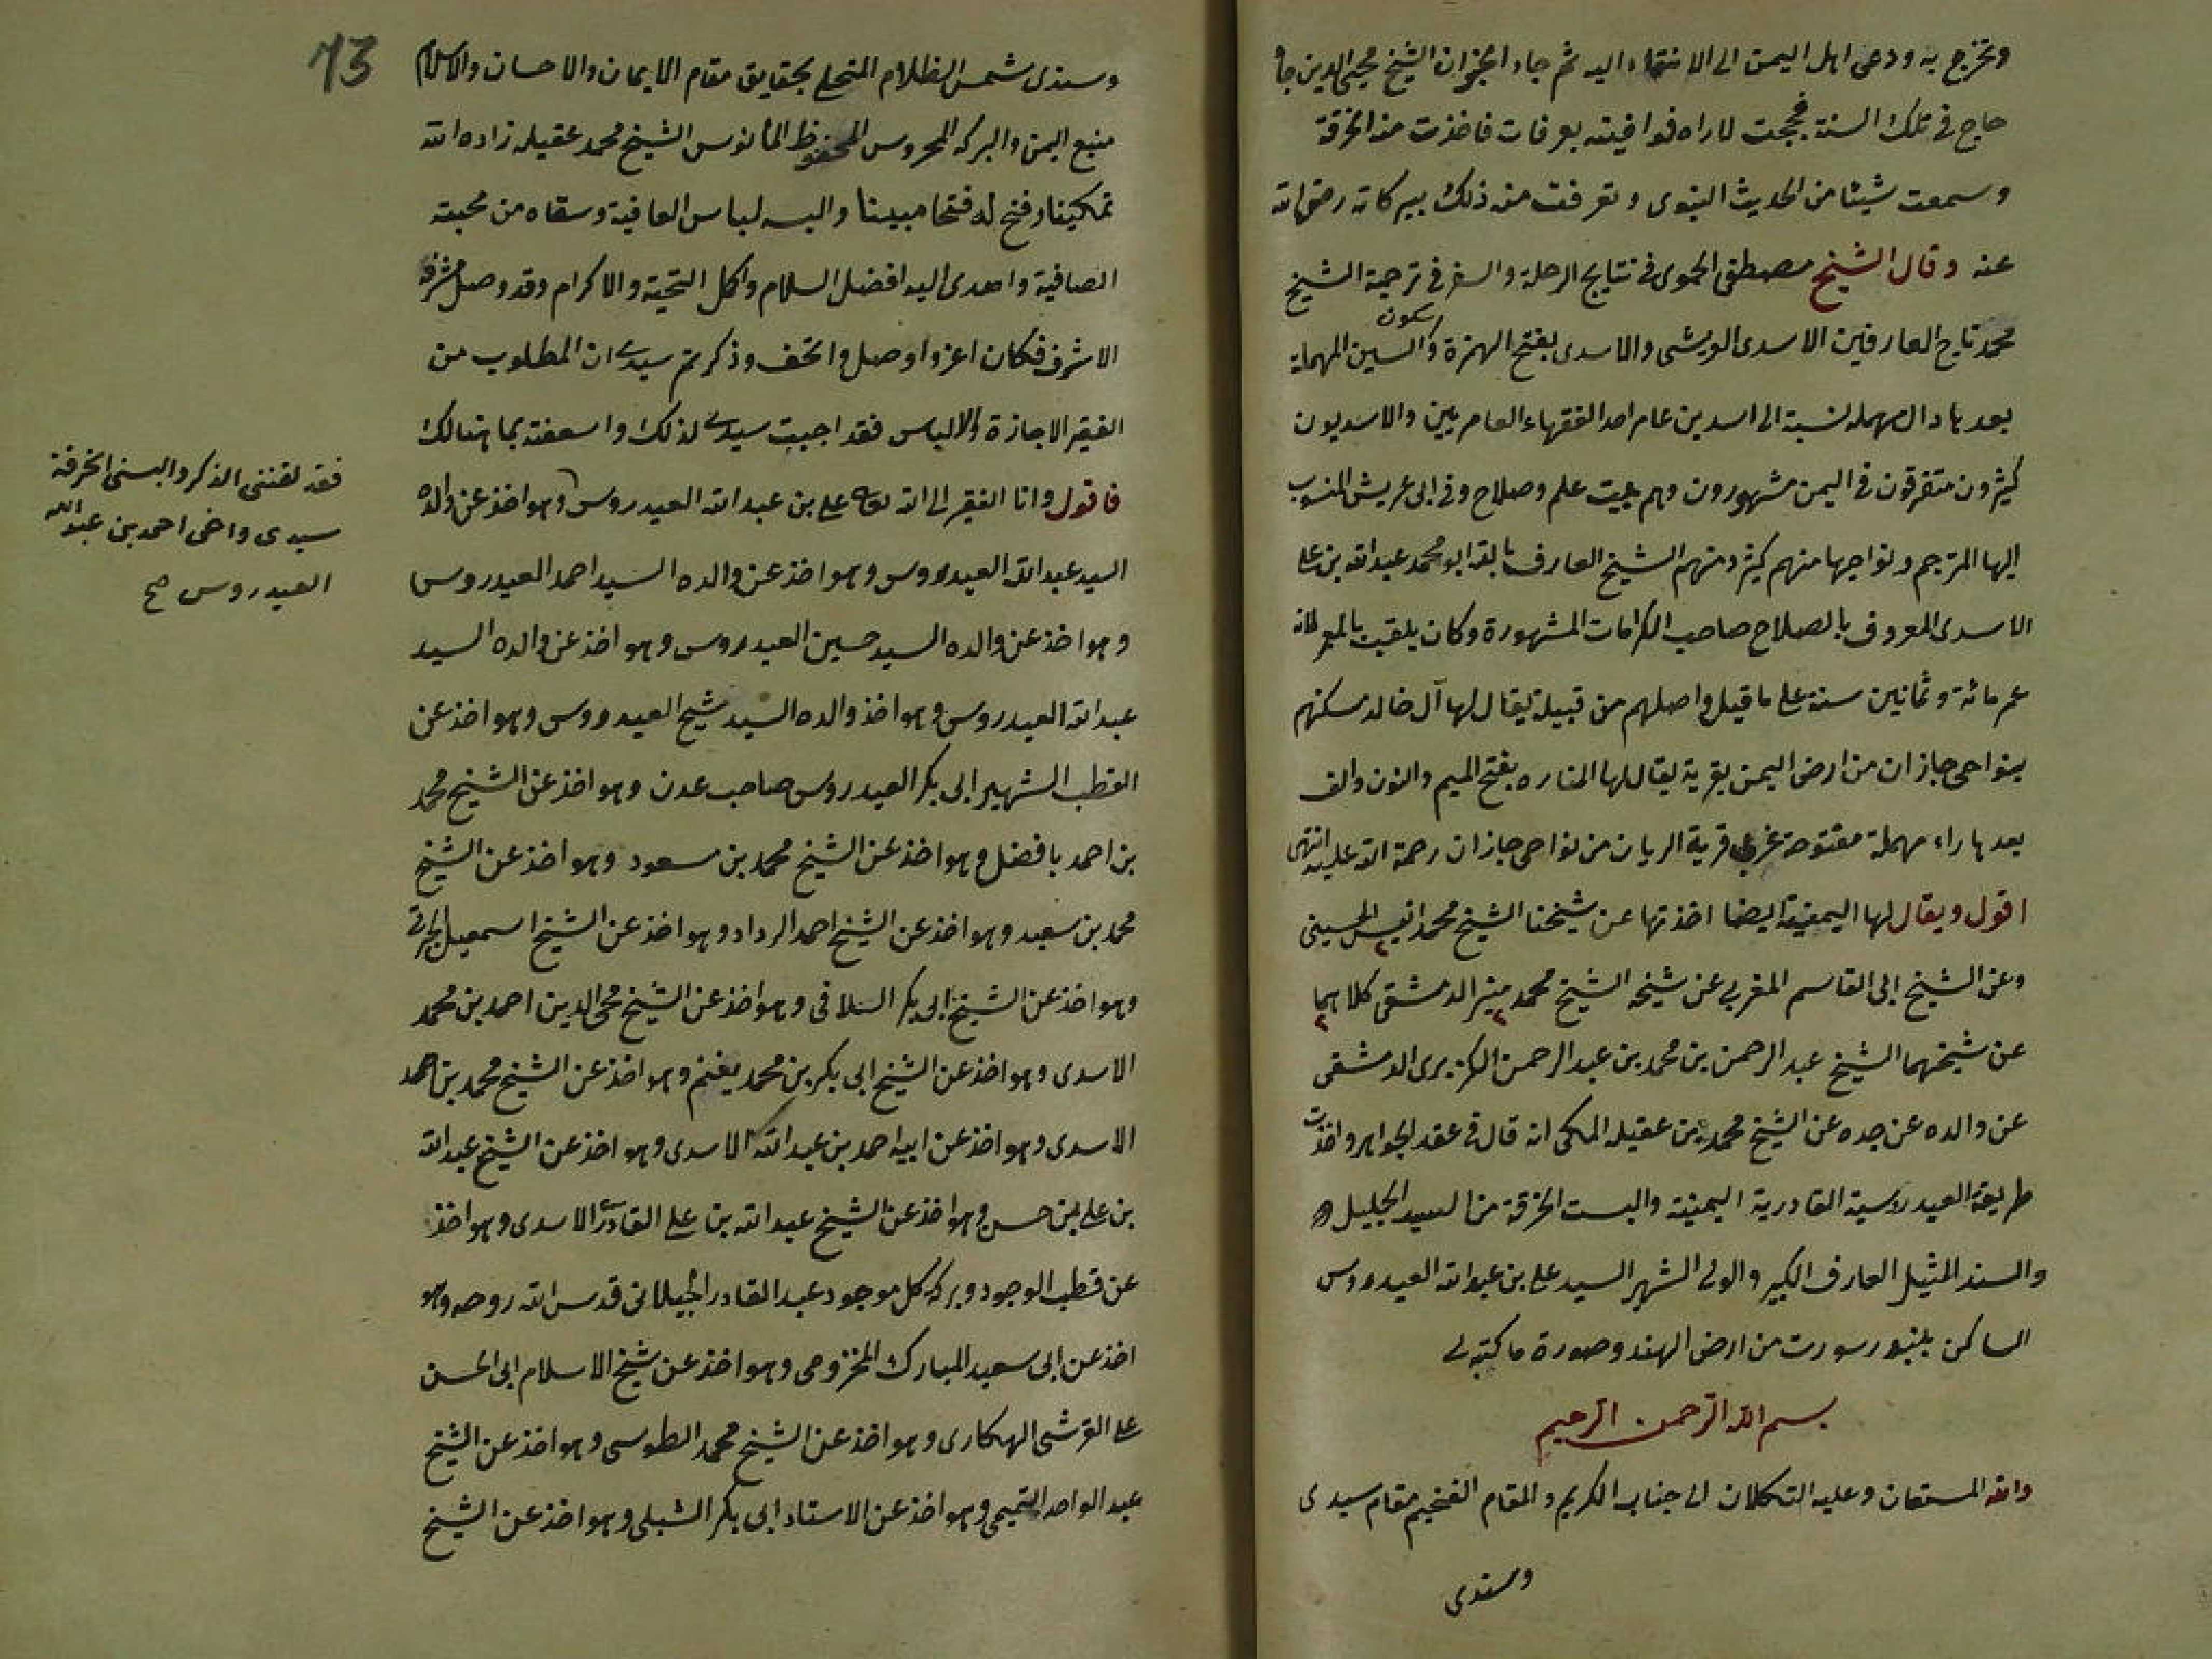 وتخرج به ودعى اهل اليمن الى الانتماء اليه ثم جاء الخبر ان الشيخ محيى الدين جا
حاج فى تلك السنة فحججت لاراه فوافيته بعرفات فاخذت منه الخرقة
وسمعت شيئا من الحديث النبوى وتعرفت منه ذلك ببركاته رضى الله
عنه وقال الشيخ مصطفى الحموى فى نتايج الرحلة والسفر فى ترجمة الشيخ
محمد تاج العارفين الاسدى العريشى والاسدى بفتح الهمزة وسكون السين المهملة
بعدها دال مهملة نسبة الى اسد بن عامر احد الفقهاء العامريين والاسديون
كثيرون متفرقون فى اليمن مشهورون وهم بيت علم وصلاح وفى ابى عريش المنسوب
اليها المترجم ونواحيها منهم كثير ومنهم الشيخ العارف بالله ابو محمد عبد الله بن على
الاسدى المعروف بالصلاح صاحب الكرامات المشهورة وكان يلقب بالمعمر لانه
عمر مائة وثمانين سنة على ما قيل واصلهم من قبيلة يقال لها آل خالد مسكنهم
بنواحى جازان من ارض اليمن بقرية يقال لها المناره بفتح الميم والنون والف
بعدها راء مهملة مفتوحة غربى قرية الريان من نواحى جازان رحمة الله عليه انتهى
اقول ويقال لها اليمنية ايضا اخذتها عن شيخنا الشيخ محمد انيس الحسينى
وعن الشيخ ابى القاسم المغربى عن شيخه الشيخ محمد منير الدمشقى كلاهما
عن شيخهما الشيخ عبد الرحمن بن محمد بن عبد الرحمن الكزبرى الدمشقى
عن والده عن جده عن الشيخ محمد بن عقيله المكى انه قال فى عقد الجواهر واخذت
طريقة العيدروسية القادرية اليمنية والبست الخرقة من السيد الجليل
والسند المثيل العارف الكبير والولى الشهير السيد على بن عبد الله العيدروس
الساكن ببندر سورت من ارض الهند وصورة ما كتبه لى
بسم الله الرحمن الرحيم
والله المستعان وعليه التكلان الى جناب الكريم والمقام الفخيم مقام سيدى
وسندى
73
وسندى شمس الظلام المتحلى بحقايق مقام الايمان والاحسان والاسلام
منبع اليمن والبركه المحروس المحفوظ المأنوس الشيخ محمد عقيله زاده الله
تمكينا وفتح له فتحا مبينا والبسه لباس العافية وسقاه من محبته
الصافية واهدى اليه افضل السلام واكمل التحية والاكرام وقد وصل مشرفه
الاشرف فكان اعز واوصل واتحف وذكرتم سيدى ان المطلوب من
الفقير الاجازة والالباس فقد اجبت سيدى لذلك واسعفته بما هنالك
فاقول وانا الفقير الى الله تعالى على بن عبد الله العيدروس وهو اخذ عن والده
السيد عبد الله العيدروس وهو اخذ عن والده السيد احمد العيدروس
وهو اخذ عن والده السيد حسين العيدروس وهو اخذ عن والده السيد
عبد الله العيدروس وهو اخذ والده السيد شيخ العيدروس وهو اخذ عن
القطب الشهير ابى بكر العيدروس صاحب عدن وهو اخذ عن الشيخ محمد
بن احمد بافضل وهو اخذ عن الشيخ محمد بن مسعود وهو اخذ عن الشيخ
محمد بن سعيد وهو اخذ عن الشيخ احمد الرداد وهو اخذ عن الشيخ اسمعيل الجبرتى
وهو اخذ عن الشيخ ابى بكر السلافى وهو اخذ عن الشيخ محى الدين احمد بن محمد
الاسدى وهو اخذ عن الشيخ ابى بكر بن محمد يغنم وهو اخذ عن الشيخ محمد بن احمد
الاسدى وهو اخذ عن ابيه احمد بن عبد الله الاسدى وهو اخذ عن الشيخ عبد الله
بن على بن حسن وهو اخذ عن الشيخ عبد الله بن على القادرى الاسدى وهو اخذ
عن قطب الوجود وبركه كل موجود عبد القادر الجيلانى قدس الله روحه وهو
اخذ عن ابى سعيد المبارك المخزومى وهو اخذ عن شيخ الاسلام ابى الحسن
على القرشى الهكارى وهو اخذ عن الشيخ محمد الطوسى وهو اخذ عن الشيخ
عبد الواحد التميمى وهو اخذ عن الاستاد ابى بكر الشبلى وهو اخذ عن الشيخ
فقد لقننى الذكر والبسنى الخرقة
سيدى واخى احمد بن عبد الله
العيدروس صح